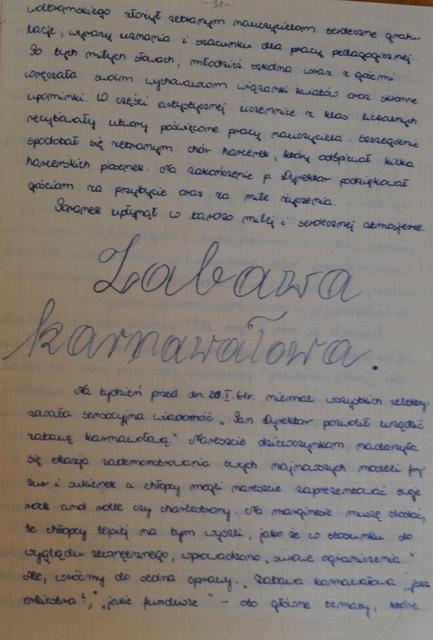 - 31 -
wolbromskiego złożył zebranym nauczycielom serdeczne gratu-
lacje, wyrazy uznania i szacunku dla pracy pedagogicznej.
Po tych miłych słowach, młodzież szkolna wraz z gośćmi
wręczała swoim wychowawcom wiązanki kwiatów oraz skromne
upominki. W części artystycznej uczennice z klas
recytowały utwory poświęcone pracy nauczyciela. Szczególnie
spodobał się zebranym chór harcerek, który odśpiewał kilka
harcerskich piosenek. Na zakończenie p. Dyrektor podziękował
gościom za przybycie oraz za miłe życzenia.
Poranek upłynął w bardzo miłej i serdecznej atmosferze.
Zabawa
karnawałowa.
Na tydzień przed dn. 28.I.61r. niemal wszystkich
sensacyjna wiadomość „Pan Dyrektor pozwolił urządzić
zabawę karnawałową." Nareszcie dziewczynkom nadarzyła
się okazja zademonstrowania swych najnowszych modeli fry-
zur i sukienek a chłopcy mogli nareszcie zaprezentować swoje
rock and rolle czy charlestony. Na marginesie muszę dodać,
że chłopcy lepiej na tym wyszli, jako że w stosunku do
wyglądu zewnętrznego, wprowadzono „surowe ograniczenia."
Ale, wróćmy do sedna sprawy. „Zabawa karnawałowa", „jaka
orkiestra?", „jakie fundusze" - oto główne tematy, które